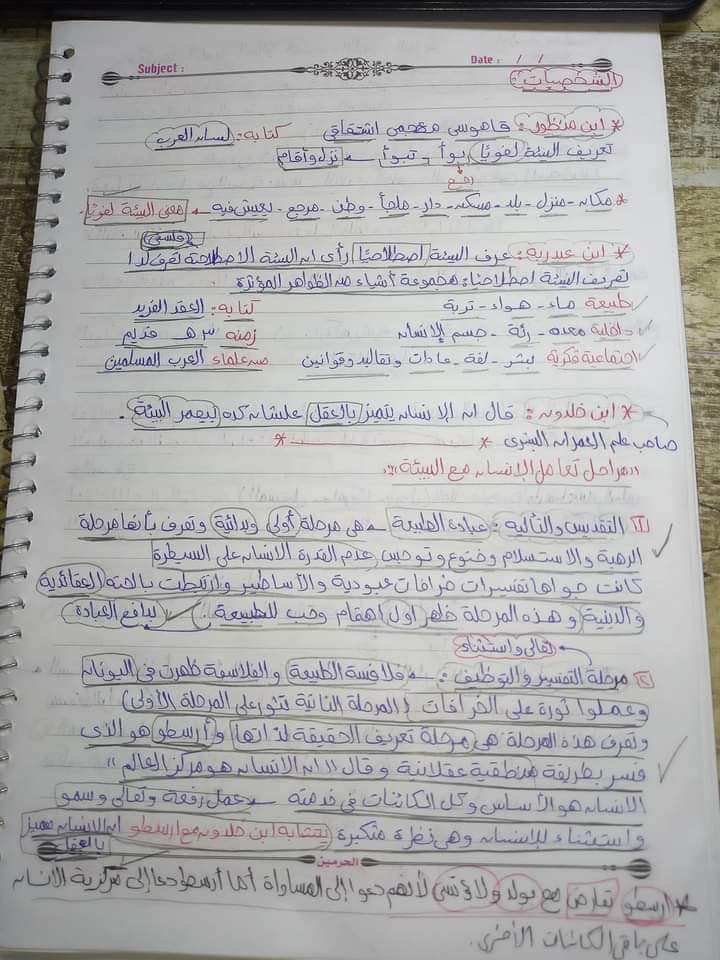 Subject :
Date : / /
الشخصيات :
* ابن منظور : قاموسي معجمي اشتقاقي كتابه : لسان العرب
تعريف البيئة لغويًا بوأ - تبوأ ← نزل وأقام
رجع
* مكان - منزل - بلد - مسكن - دار - ملجأ - وطن - مرجع - يعيش فيه ← معنى البيئة لغويا.
فلسفي
* ابن عبدربه : عرف البيئة اصطلاحيًا رأى ان البيئة الاصطلاحية تعرف لدا
تعريف البيئة اصطلاحيا : مجموعة أشياء من الظواهر المؤثرة
طبيعة ماء - هواء - تربة كتابه : العقد الفريد
داخلية معده - رئة - جسم الإنسان زمنه ٣ هـ قديم
اجتماعية فكرية بشر - لغة - عادات وتقاليد وقوانين من علماء العرب المسلمين
* ابن خلدون : قال ان الإنسان يتميز بالعقل علشان كده بيعمر البيئة .
صاحب علم العمران البشرى * *
"مراحل تعامل الإنسان مع البيئة"
[1] التقديس والتأليه : عبادة الطبيعة ← هي مرحلة أولى وبدائية وتعرف بأنها مرحلة
الرهبة والاستسلام وخنوع وتوجس عدم القدرة الانسان على السيطرة
كانت جواها تفسيرات خرافات عبودية والأساطير وارتبطت بالحتة العقائدية
والدينية وهذه المرحلة ظهر اول اهتمام وحب للطبيعة . بدافع العبادة
تعالى واستثناء
[2] مرحلة التفسير والتوظيف : فلافسة الطبيعة والفلاسفة ظهرت في اليونان
وعملوا ثورة على الخرافات (المرحلة الثانية بتثور على المرحلة الأولى)
وتعرف هذه المرحلة هي مرحلة تعريف الحقيقة لذاتها وأرسطو هو الذى
فسر بطريقة منطقية عقلانية وقال "ان الانسان هو مركز العالم"
الانسان هو الأساس وكل الكائنات في خدمته ← عمل رفعة وتعالى وسمو
واستثناء للإنسان وهي نظرة متكبرة يتشابه ابن خلدون مع ارسطو ان الانسان مميز
بالعقل
الحرمين
* ارسطو تعارض مع بولد ولاوتسي لأنهم دعوا إلى المساواة أما أرسطو دعا إلى مركزية الانسان
على باقي الكائنات الأخرى.